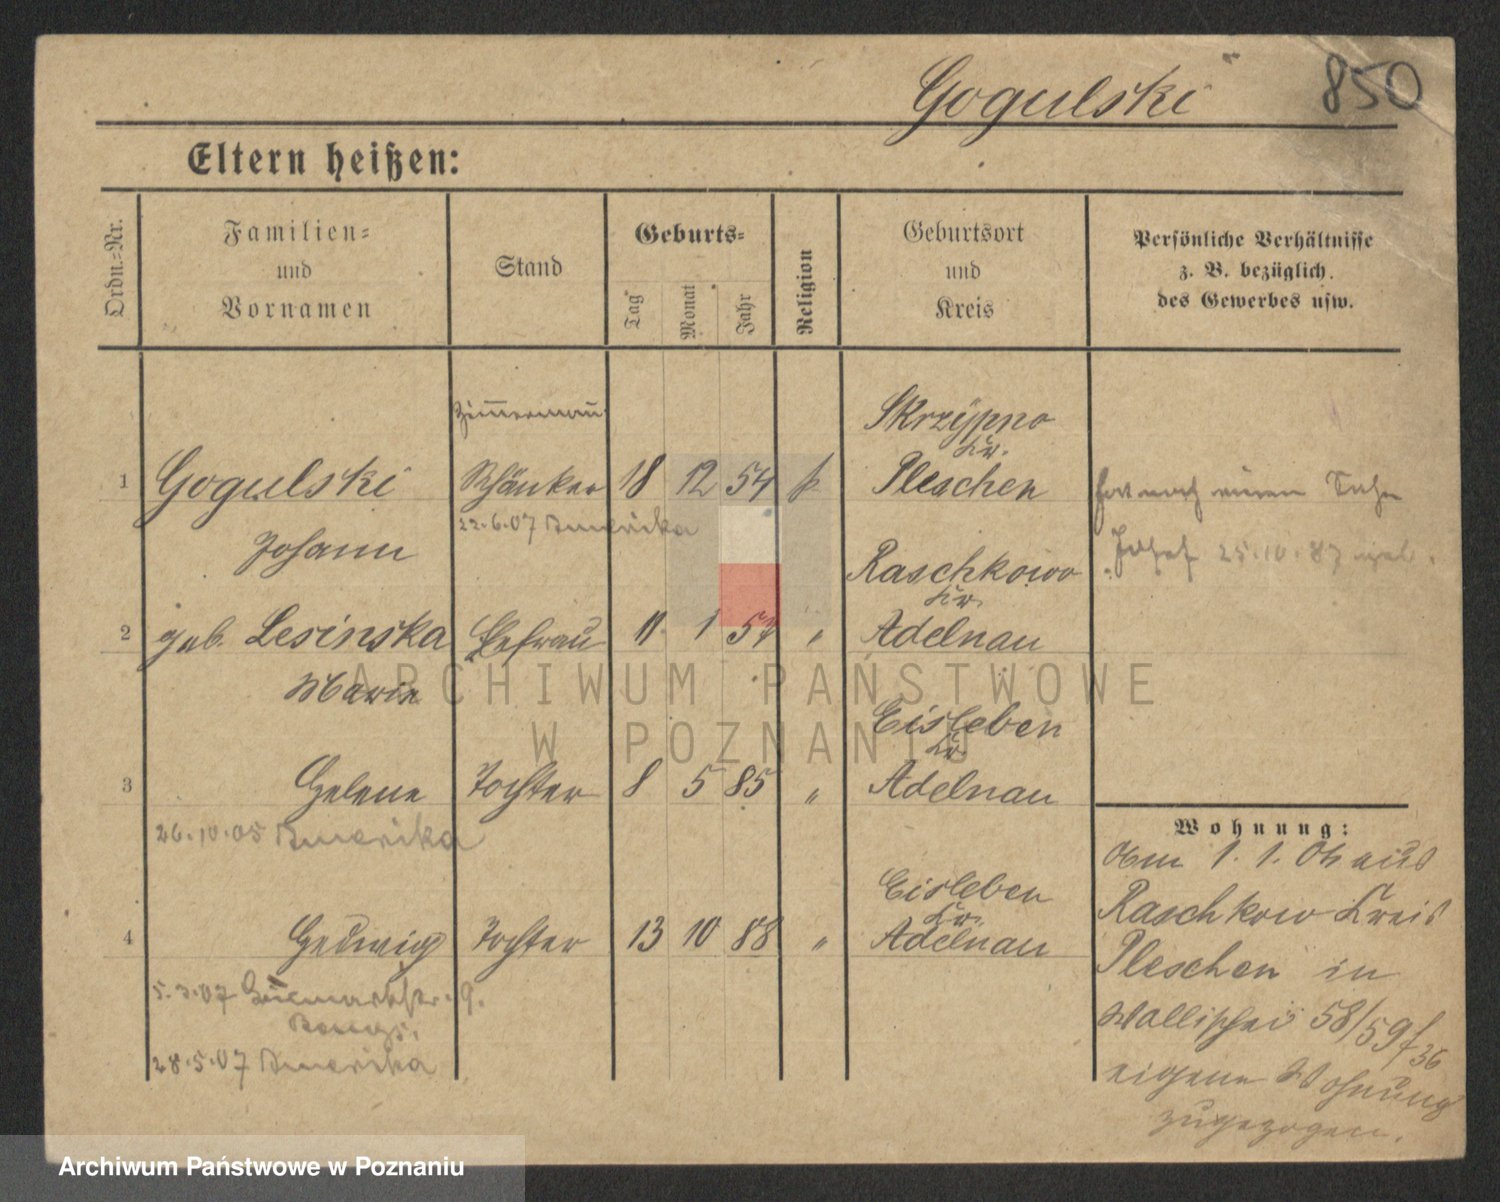 Gogulski
850
Eltern heißen:
Ordn.-Nr.
Familien-
und
Vornamen
Stand
Geburts-
Tag
Monat
Jahr
Religion
Geburtsort
und
Kreis
Persönliche Verhältnisse
z. B. bezüglich
des Gewerbes usw.
Zimmermann
Skrzypno
Kr.
1 Gogulski Schänker 18 12 54 k Pleschen
hat noch einen Sohn
22.6.07 Amerika
Johann
Josef 25.10.87 geb.
Raschkowo
Kr.
2 geb. Lesinska Ehefrau 11 1 57 " Adelnau
Marie
Eisleben
Kr.
3 Helene Tochter 8 5 85 " Adelnau
26.10.05 Amerika
Wohnung:
Am 1. 1. aus
Eisleben
Kr.
Raschkow Kreis
4 Hedwig Tochter 13 10 88 " Adelnau
Pleschen in
5.3.07 9.
Wallischei 58/59
28.5.07 Amerika
eigene Wohnung
zugezogen.
ARCHIWUM PAŃSTWOWE
W POZNANIU
Archiwum Państwowe w Poznaniu